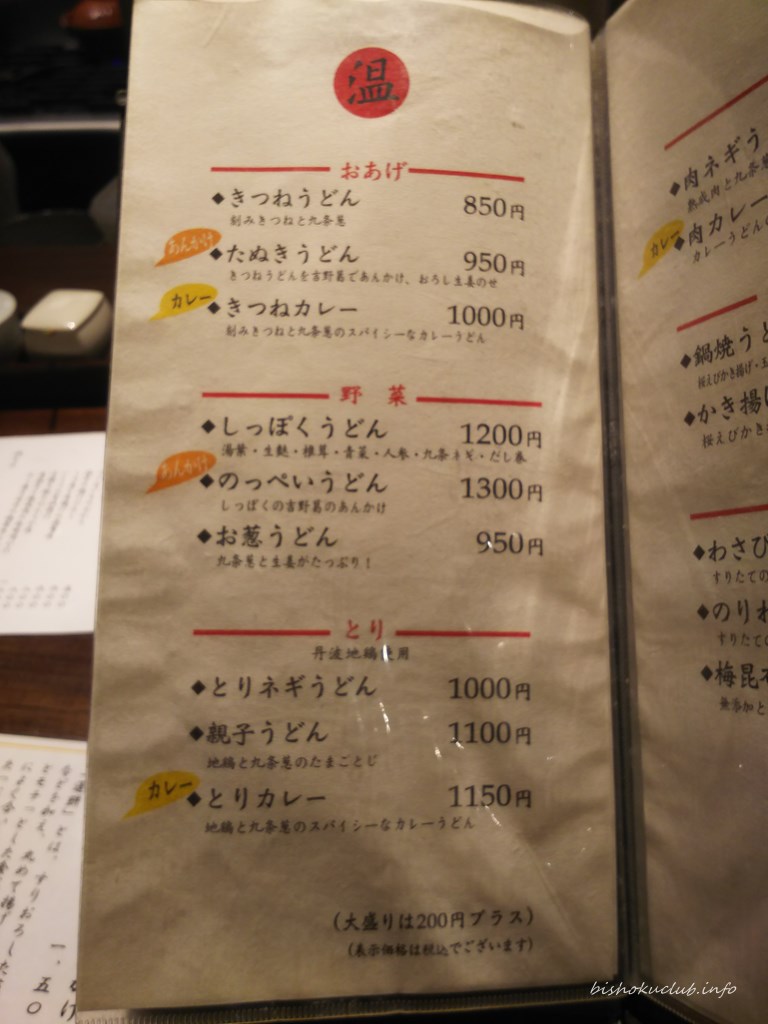 温
おあげ
◆きつねうどん 850円
刻みきつねと九条葱
あんかけ
◆たぬきうどん 950円
きつねうどんを吉野葛であんかけ、おろし生姜のせ
カレー
◆きつねカレー 1000円
刻みきつねと九条葱のスパイシーなカレーうどん
野菜
◆しっぽくうどん 1200円
湯葉・生麩・椎茸・青菜・人参・九条ネギ・だし巻
あんかけ
◆のっぺいうどん 1300円
しっぽくの吉野葛のあんかけ
◆お葱うどん 950円
九条葱と生姜がたっぷり！
とり
丹波地鶏使用
◆とりネギうどん 1000円
◆親子うどん 1100円
地鶏と九条葱のたまごとじ
カレー
◆とりカレー 1150円
地鶏と九条葱のスパイシーなカレーうどん
（大盛りは200円プラス）
（表示価格は税込でございます）
◆肉ネギう
熟成肉と九条葱
カレー
◆肉カレー
カレーうどんの
◆鍋焼うど
桜えびかき揚げ・玉
◆かき揚げ
桜えびかき
◆わさび
すりたての
◆のりわ
すりたての
◆梅昆布
無添加と
bishokuclub.info